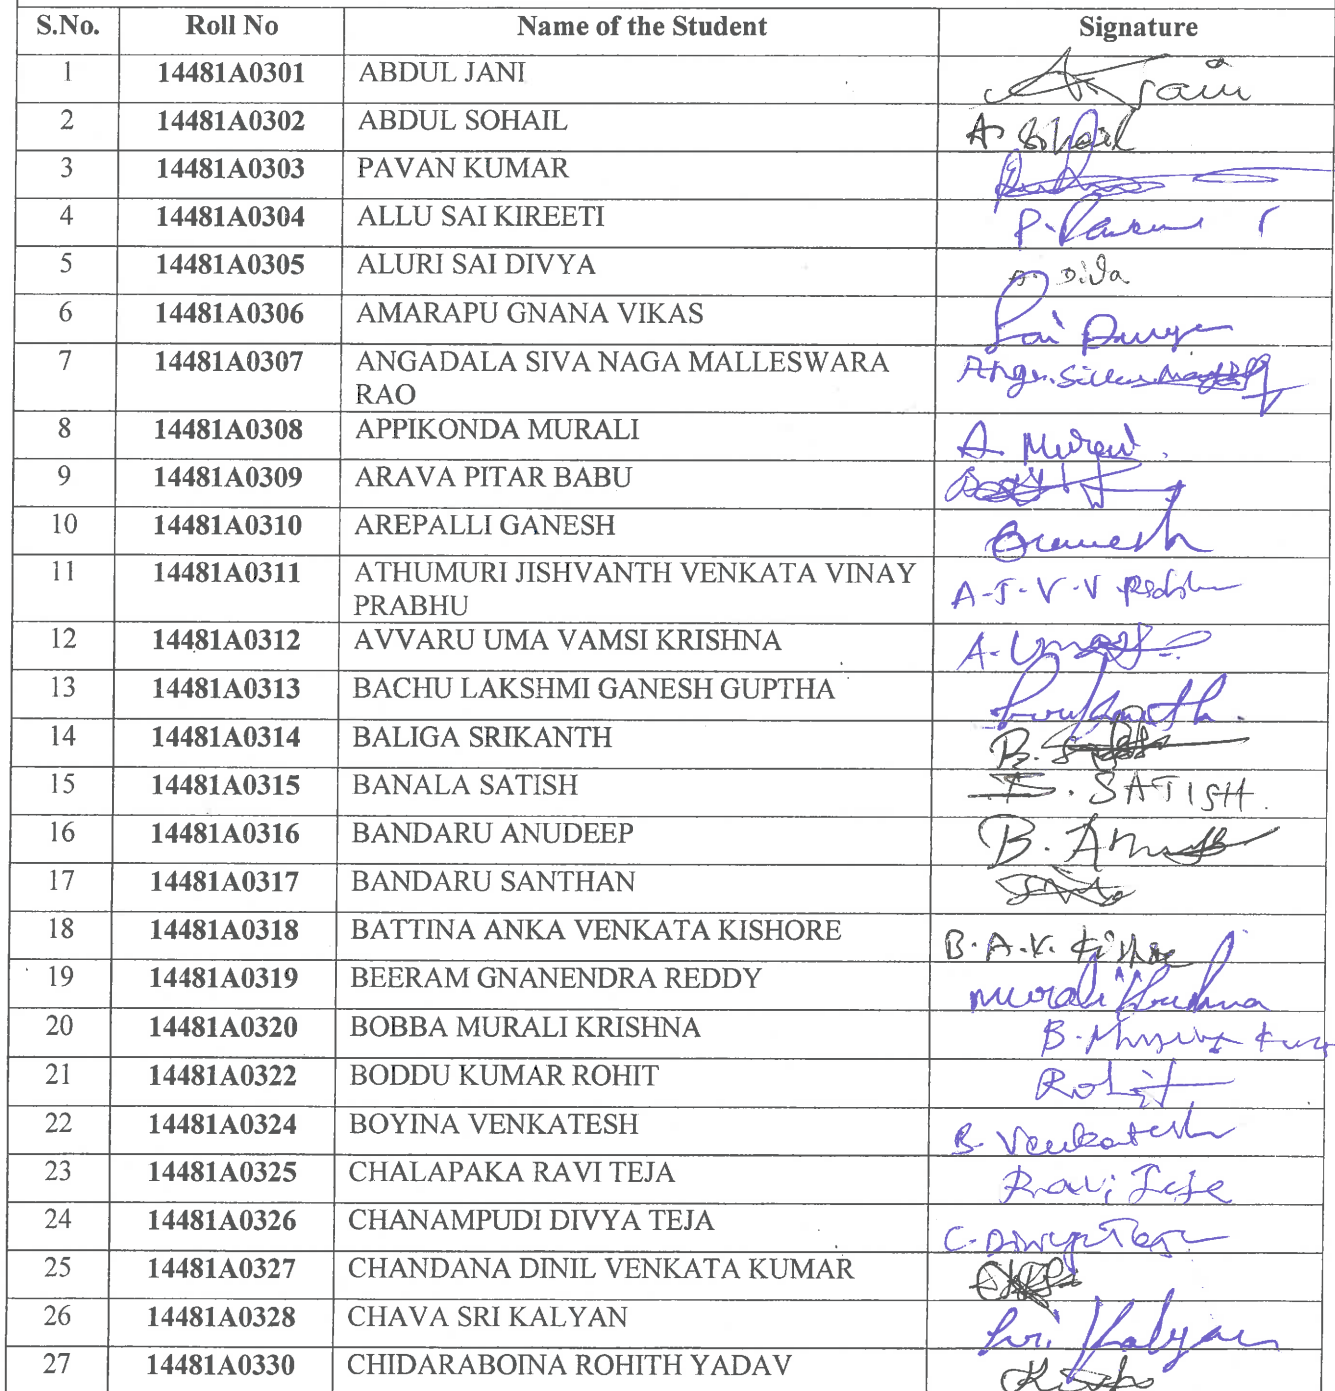 S.No. Roll No Name of the Student Signature
1 14481A0301 ABDUL JANI
2 14481A0302 ABDUL SOHAIL A. Sohail
3 14481A0303 PAVAN KUMAR
4 14481A0304 ALLU SAI KIREETI
5 14481A0305 ALURI SAI DIVYA
6 14481A0306 AMARAPU GNANA VIKAS
7 14481A0307 ANGADALA SIVA NAGA MALLESWARA
RAO
8 14481A0308 APPIKONDA MURALI A. Murali
9 14481A0309 ARAVA PITAR BABU
10 14481A0310 AREPALLI GANESH
11 14481A0311 ATHUMURI JISHVANTH VENKATA VINAY
PRABHU A-J-V-V
12 14481A0312 AVVARU UMA VAMSI KRISHNA
13 14481A0313 BACHU LAKSHMI GANESH GUPTHA
14 14481A0314 BALIGA SRIKANTH
15 14481A0315 BANALA SATISH SATISH
16 14481A0316 BANDARU ANUDEEP
17 14481A0317 BANDARU SANTHAN
18 14481A0318 BATTINA ANKA VENKATA KISHORE B.A.V.
19 14481A0319 BEERAM GNANENDRA REDDY Murali Krishna
20 14481A0320 BOBBA MURALI KRISHNA
21 14481A0322 BODDU KUMAR ROHIT Rohit
22 14481A0324 BOYINA VENKATESH B. Venkatesh
23 14481A0325 CHALAPAKA RAVI TEJA Ravi Teja
24 14481A0326 CHANAMPUDI DIVYA TEJA
25 14481A0327 CHANDANA DINIL VENKATA KUMAR
26 14481A0328 CHAVA SRI KALYAN Sri Kalyan
27 14481A0330 CHIDARABOINA ROHITH YADAV